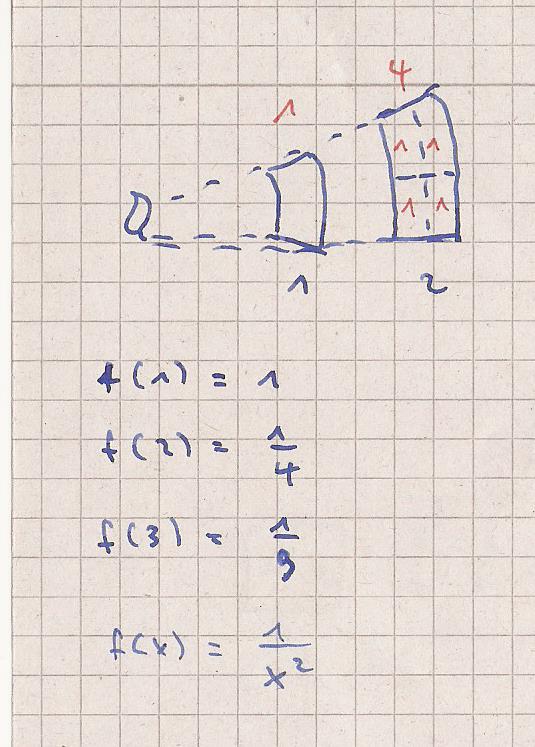 4
1
1 1
1 1
1 2
f(1) = 1
f(2) = 1/4
f(3) = 1/9
f(x) = 1/x²